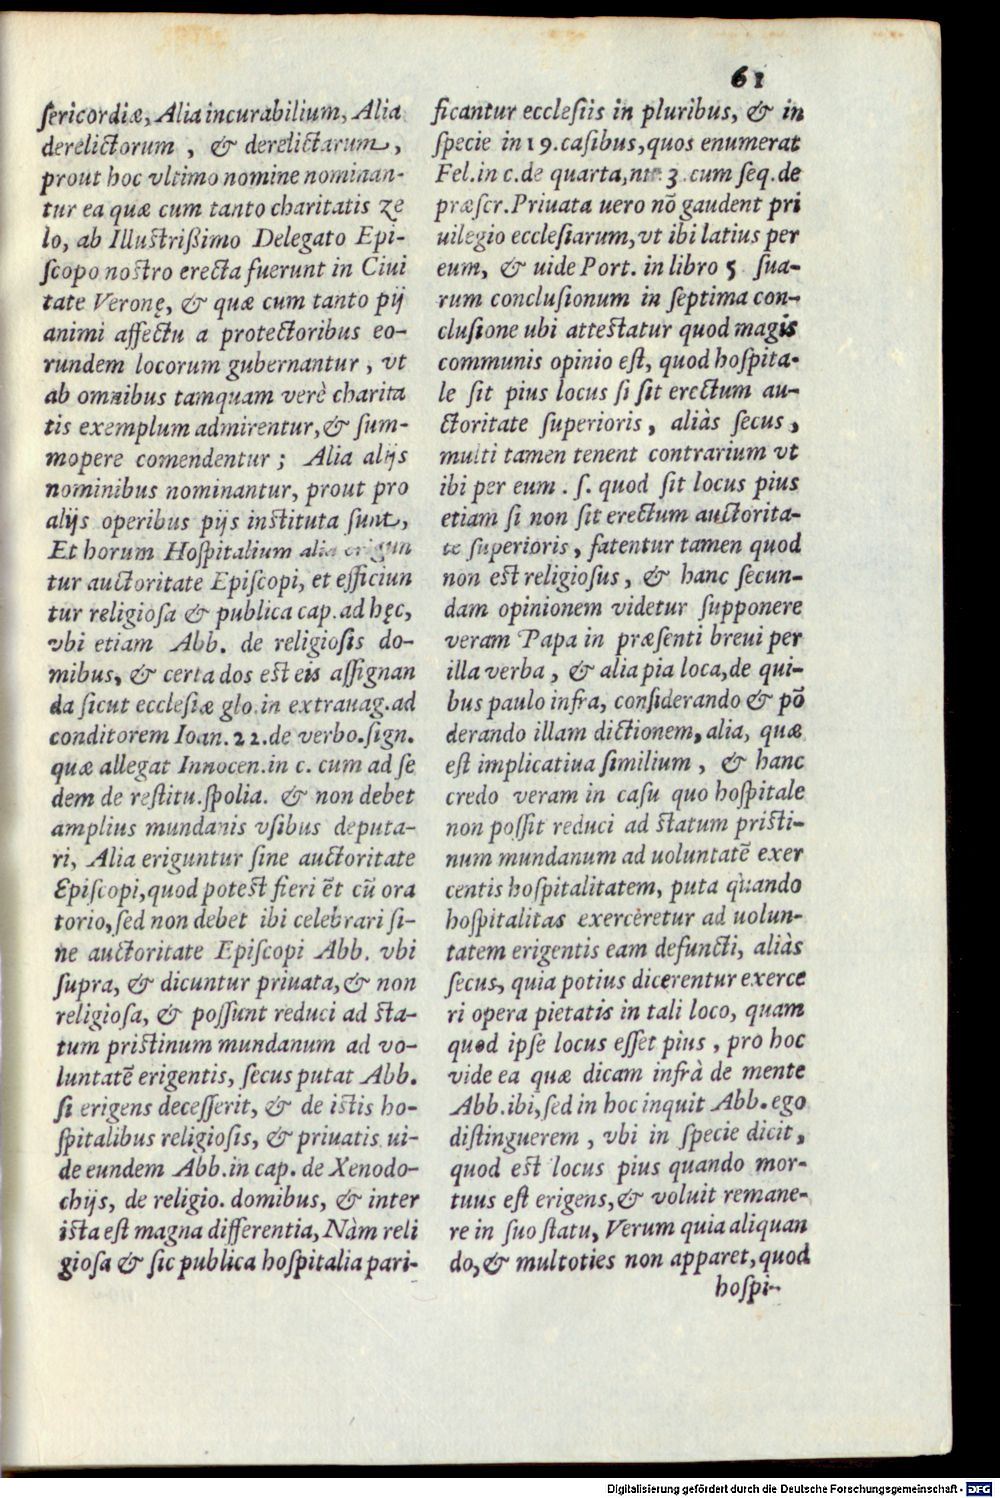 61
sericordiæ, Alia incurabilium, Alia
derelictorum, & derelictarum,
prout hoc vltimo nomine nominan-
tur ea quæ cum tanto charitatis ze
lo, ab Illustrißimo Delegato Epi-
scopo nostro erecta fuerunt in Ciui
tate Veronę, & quæ cum tanto pij
animi affectu a protectoribus eo-
rundem locorum gubernantur, vt
ab omnibus tamquam verè charita
tis exemplum admirentur, & sum-
mopere comendentur; Alia alijs
nominibus nominantur, prout pro
alijs operibus pijs instituta sunt,
Et horum Hospitalium alia erigun
tur auctoritate Episcopi, et efficiun
tur religiosa & publica cap. ad hęc,
vbi etiam Abb. de religiosis do-
mibus, & certa dos est eis assignan
da sicut ecclesiæ glo. in extrauag. ad
conditorem Ioan. 22. de verbo. sign.
quæ allegat Innocen. in c. cum ad se
dem de restitu. spolia. & non debet
amplius mundanis vsibus deputa-
ri, Alia eriguntur sine auctoritate
Episcopi, quod potest fieri ēt cū ora
torio, sed non debet ibi celebrari si-
ne auctoritate Episcopi Abb. vbi
supra, & dicuntur priuata, & non
religiosa, & possunt reduci ad sta-
tum pristinum mundanum ad vo-
luntatē erigentis, secus putat Abb.
si erigens decesserit, & de istis ho-
spitalibus religiosis, & priuatis ui-
de eundem Abb. in cap. de Xenodo-
chijs, de religio. domibus, & inter
ista est magna differentia, Nàm reli
giosa & sic publica hospitalia pari-
ficantur ecclesiis in pluribus, & in
specie in 19. casibus, quos enumerat
Fel. in c. de quarta, 3. cum seq. de
præscr. Priuata uero nō gaudent pri
uilegio ecclesiarum, vt ibi latius per
eum, & uide Port. in libro 5 sua-
rum conclusionum in septima con-
clusione ubi attestatur quod magis
communis opinio est, quod hospita-
le sit pius locus si sit erectum au-
ctoritate superioris, aliàs secus,
multi tamen tenent contrarium vt
ibi per eum. s. quod sit locus pius
etiam si non sit erectum auctorita-
te superioris, fatentur tamen quod
non est religiosus, & hanc secun-
dam opinionem videtur supponere
veram Papa in præsenti breui per
illa verba, & alia pia loca, de qui-
bus paulo infra, considerando & pō
derando illam dictionem, alia, quæ
est implicatiua similium, & hanc
credo veram in casu quo hospitale
non possit reduci ad statum pristi-
num mundanum ad uoluntatē exer
centis hospitalitatem, puta quando
hospitalitas exerceretur ad uolun-
tatem erigentis eam defuncti, aliàs
secus, quia potius dicerentur exerce
ri opera pietatis in tali loco, quam
quod ipse locus esset pius, pro hoc
vide ea quæ dicam infrà de mente
Abb. ibi, sed in hoc inquit Abb. ego
distinguerem, vbi in specie dicit,
quod est locus pius quando mor-
tuus est erigens, & voluit remane-
re in suo statu, Verum quia aliquan
do, & multoties non apparet, quod
hospi-
Digitalisierung gefördert durch die Deutsche Forschungsgemeinschaft - DFG